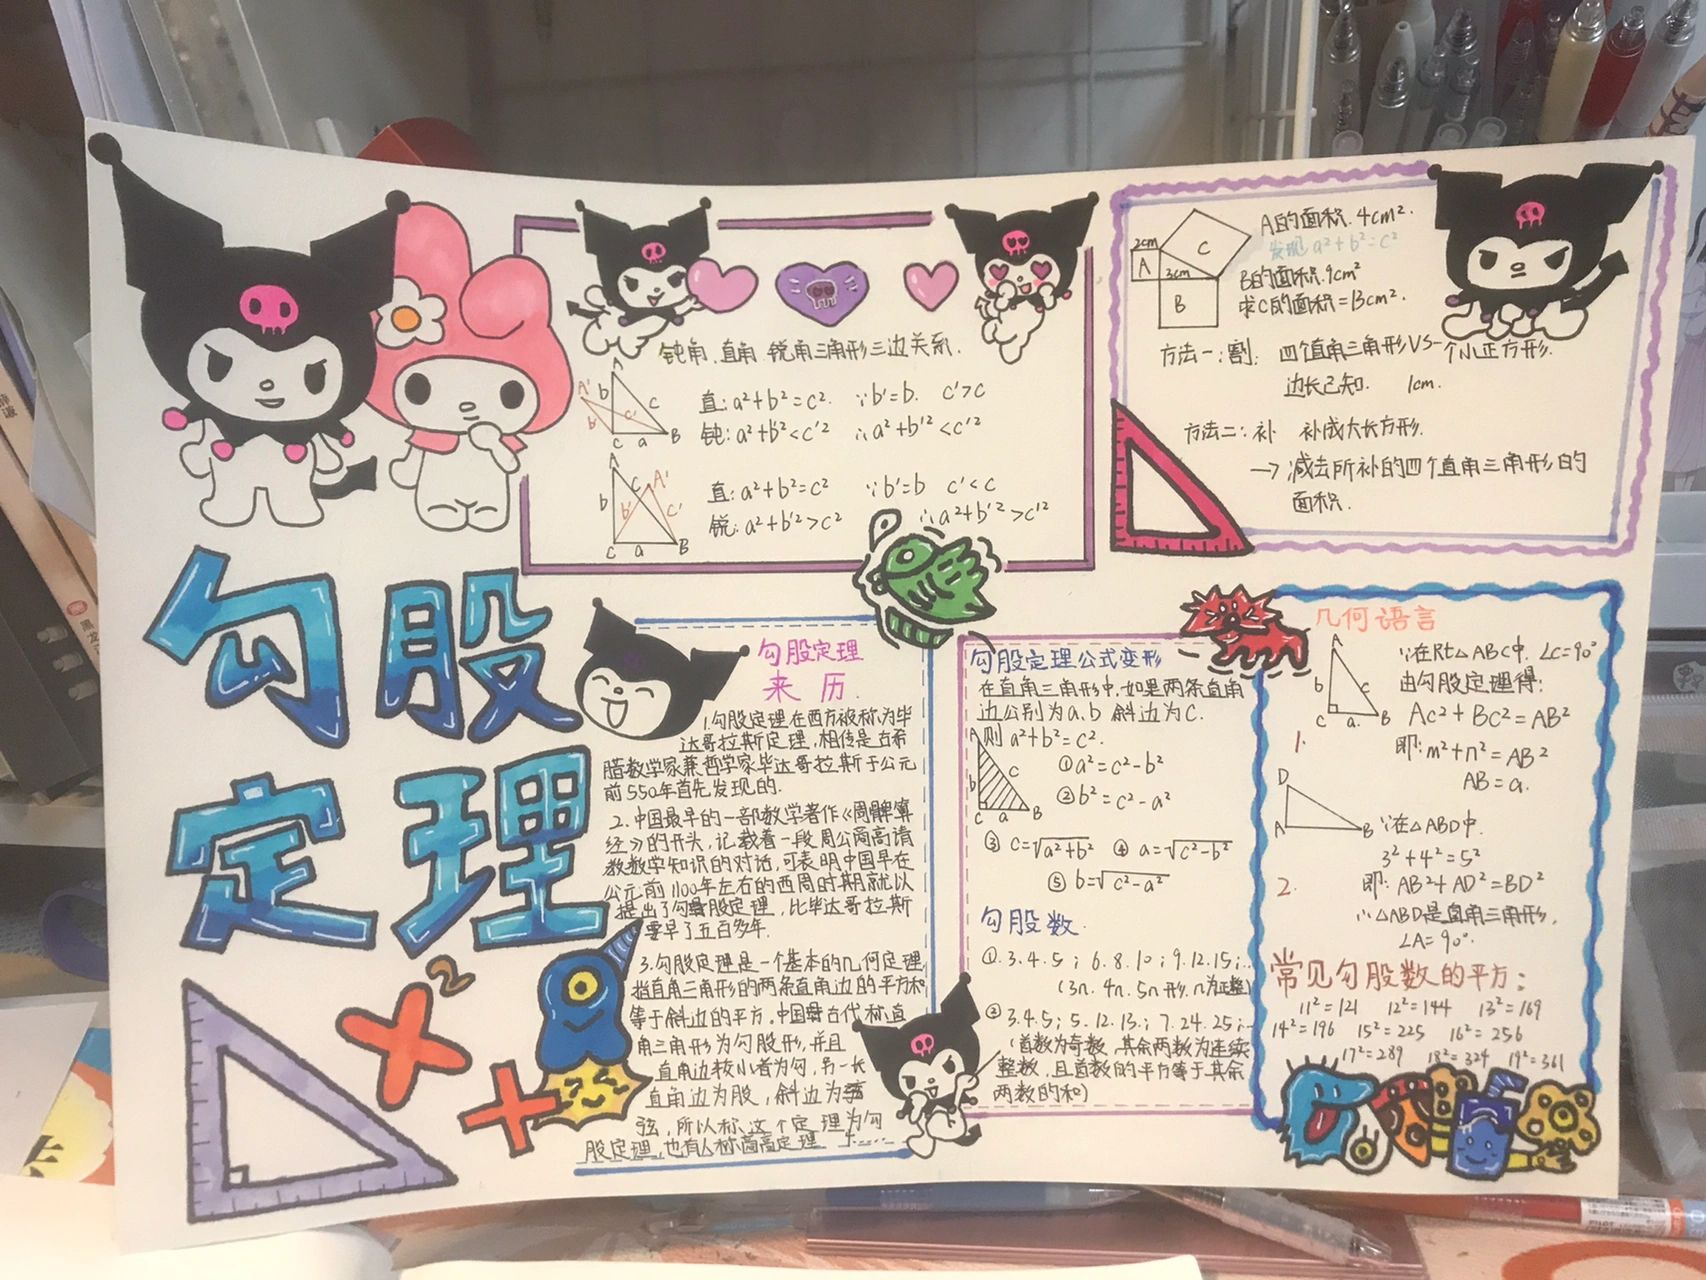 勾股
定理
2
钝角.直角.锐角三角形三边关系.
A
A'
b
c
b'
c'
C
a
B
直:a²+b²=c². ∵b'=b. c'>c
钝:a²+b²<c'² ∴a²+b'²<c'²
A
A'
b
c
b'
c'
C
a
B
直:a²+b²=c² ∵b'=b c'<c
锐:a²+b'²>c² ∴a²+b'²>c'²
2cm
A
C
3cm
B
A的面积.4cm².
发现a²+b²=c²
B的面积.9cm²
求C的面积=13cm².
方法一:割: 四个直角三角形VS一个小正方形.
边长已知. 1cm.
方法二:补 补成大长方形.
→减去所补的四个直角三角形的
面积.
勾股定理
来历.
1.勾股定理在西方被称为毕
达哥拉斯定理,相传是古希
腊数学家兼哲学家毕达哥拉斯于公元
前550年首先发现的.
2.中国最早的一部数学著作《周髀算
经》的开头,记载着一段周公商高请
教数学知识的对话,可表明中国早在
公元前1100年左右的西周时期就以
提出了勾股定理,比毕达哥拉斯
要早了五百多年.
3.勾股定理是一个基本的几何定理,
指直角三角形的两条直角边的平方和
等于斜边的平方.中国古代称直
角三角形为勾股形,并且
直角边较小者为勾,另一长
直角边为股,斜边为
弦,所以称这个定理为勾
股定理,也有人称商高定理
勾股定理公式变形
在直角三角形中,如果两条直角
边公别为a.b 斜边为c.
则a²+b²=c².
A
b
c
C
a
B
①a²=c²-b²
②b²=c²-a²
③c=√a²+b² ④a=√c²-b²
⑤b=√c²-a²
勾股数.
①.3.4.5;6.8.10;9.12.15;..
(3n.4n.5n形.n为正整)
②3.4.5;5.12.13.;7.24.25;..
(首数为奇数,其余两数为连续
整数,且首数的平方等于其余
两数的和)
几何语言
A
b
c
C
a.
B
∵在Rt△ABC中.∠C=90°
由勾股定理得:
AC²+BC²=AB²
1.
即:m²+n²=AB²
AB=a.
D
A
B
∵在△ABD中.
3²+4²=5²
2.
即:AB²+AD²=BD²
∴△ABD是直角三角形.
∠A=90°.
常见勾股数的平方:
11²=121 12²=144 13²=169
14²=196 15²=225 16²=256
17²=289 18²=324 19²=361